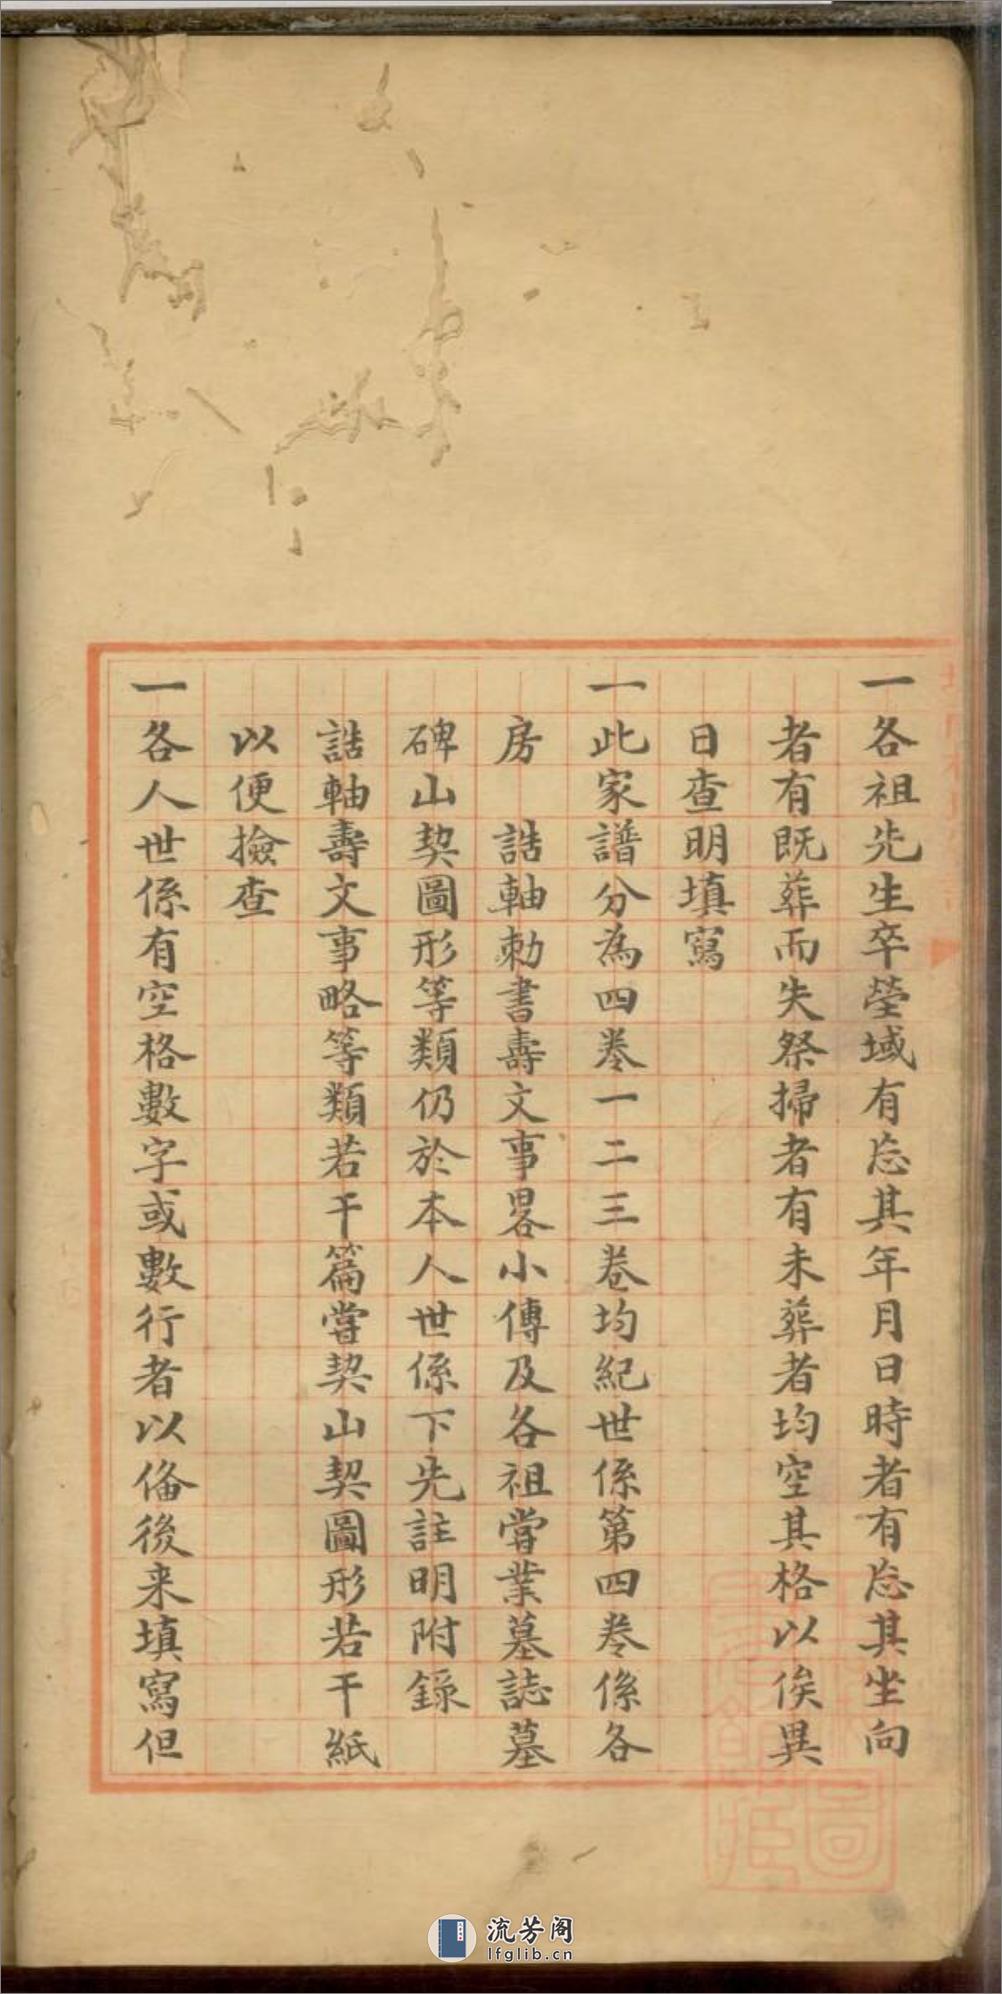 一各祖先生卒塋域有忘其年月日時者有忘其坐向
者有既葬而失祭掃者有未葬者均空其格以俟異
日查明填寫
一此家譜分為四卷一二三卷均紀世係第四卷係各
房　誥軸勅書壽文事畧小傳及各祖嘗業墓誌墓
碑山契圖形等類仍於本人世係下先註明附錄
誥軸壽文事略等類若干篇嘗契山契圖形若干紙
以便撿查
一各人世係有空格數字或數行者以俻後来填寫但
流芳阁
lfglib.cn